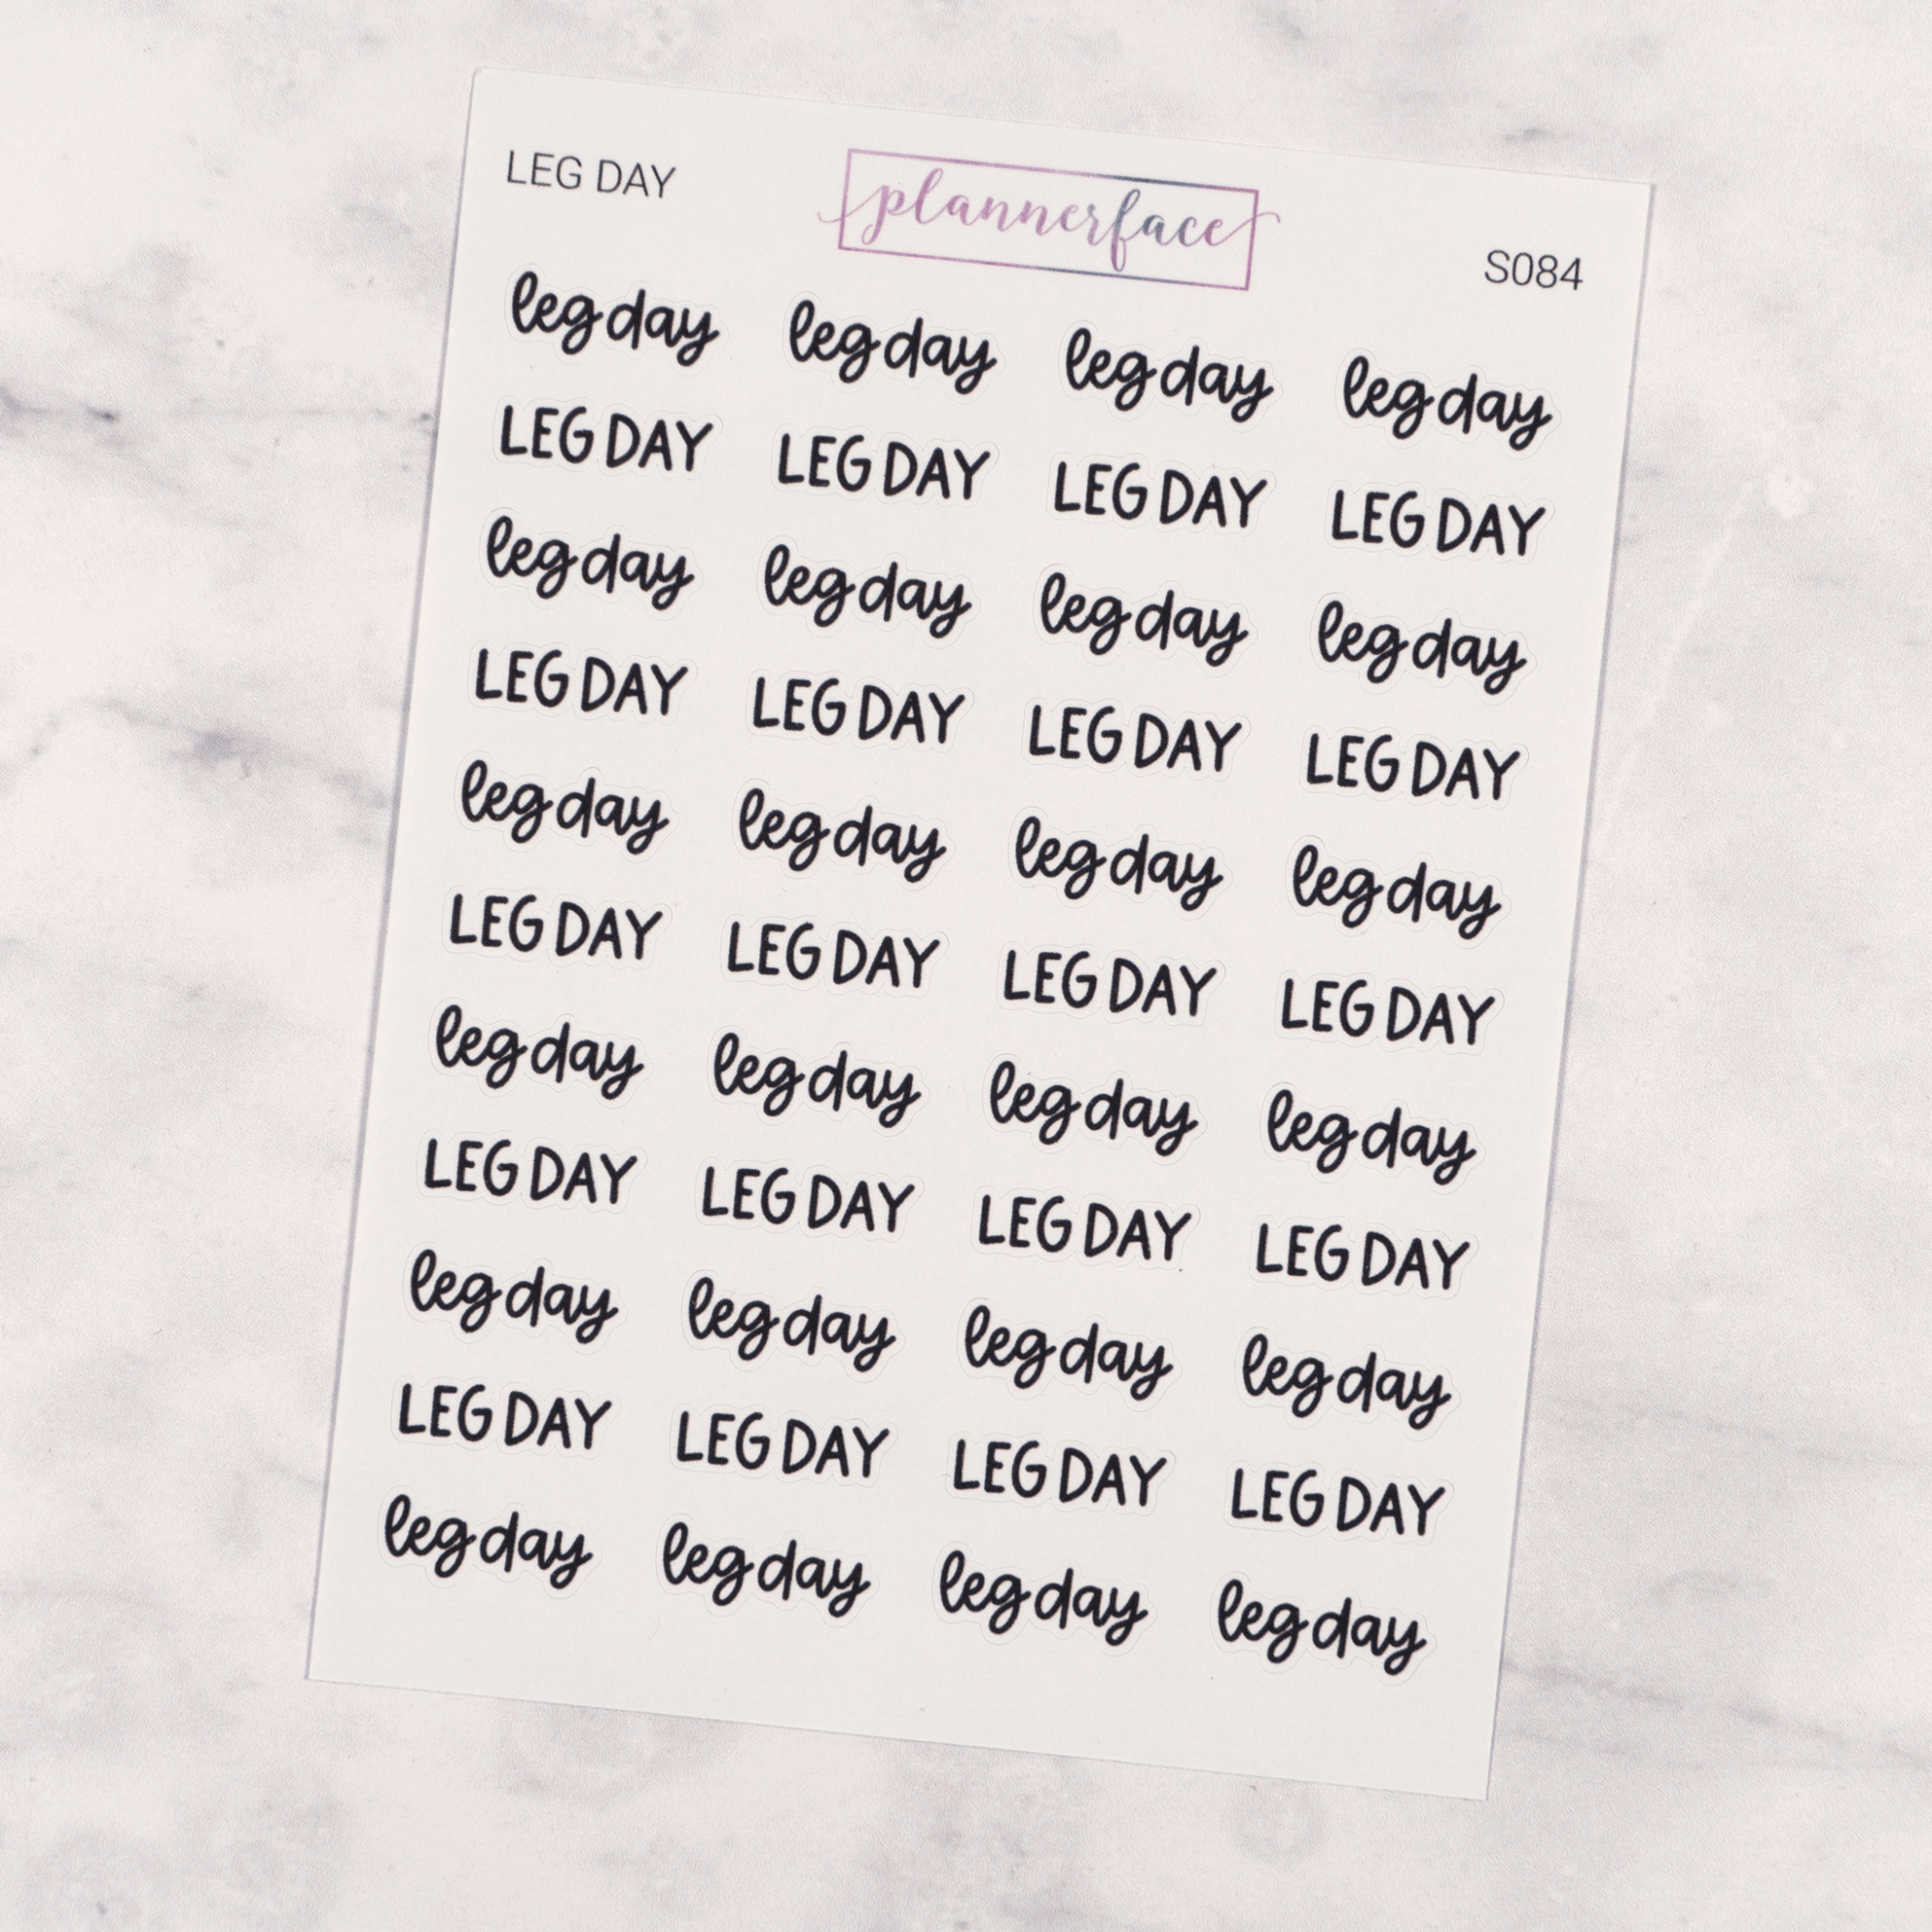 LEG DAY plannerface S084
leg day leg day leg day leg day
LEG DAY LEG DAY LEG DAY LEG DAY
leg day leg day leg day leg day
LEG DAY LEG DAY LEG DAY LEG DAY
leg day leg day leg day leg day
LEG DAY LEG DAY LEG DAY LEG DAY
leg day leg day leg day leg day
LEG DAY LEG DAY LEG DAY LEG DAY
leg day leg day leg day leg day
LEG DAY LEG DAY LEG DAY LEG DAY
leg day leg day leg day leg day